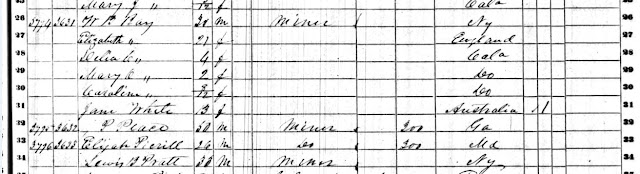 Mary J " f Cala
26 3774 3631 W Ray 30 m Miner 1 Ny 26
Elizabeth " 21 f England
Delia A " 4 f Cala 28
Mary " 2 f Do
30 Caroline " f Do 30
31 Jane White 13 f Australia 1 31
32 3775 3632 P Peace 30 m Miner 1 200 Ga 32
33 3776 3633 Elijah 26 m Do 1 300 Md 33
34 Lewis B Pratt m Miner 1 Ny